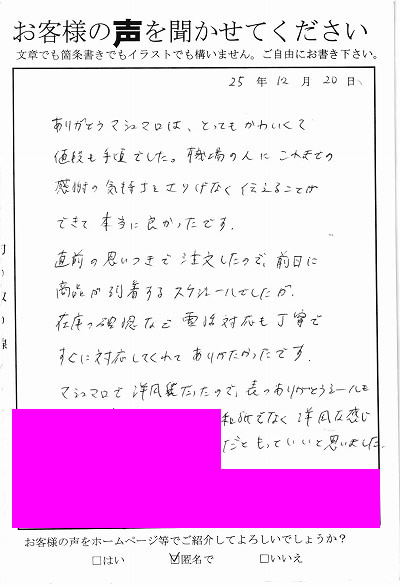 お客様の声を聞かせてください
文章でも箇条書きでもイラストでも構いません。ご自由にお書き下さい。
25 年 12 月 20 日、
ありがとうマシュマロは、とってもかわいくて
値段も手頃でした。職場の人に これまでの
感謝の気持ちをさりげなく伝えることが
できて 本当に良かったです.
直前の思いつきで 注文したので、前日に
商品が到着する スケジュールでしたが.
在庫の確認など 電話対応も丁寧で
すぐに対応してくれて ありがたかったです.
マシュマロで 洋風袋だったので、表のありがとうシールも
和風でなく 洋風な感じ
だともっといいと思いました.
お客様の声をホームページ等でご紹介してよろしいでしょうか？
□はい ☑匿名で □いいえ